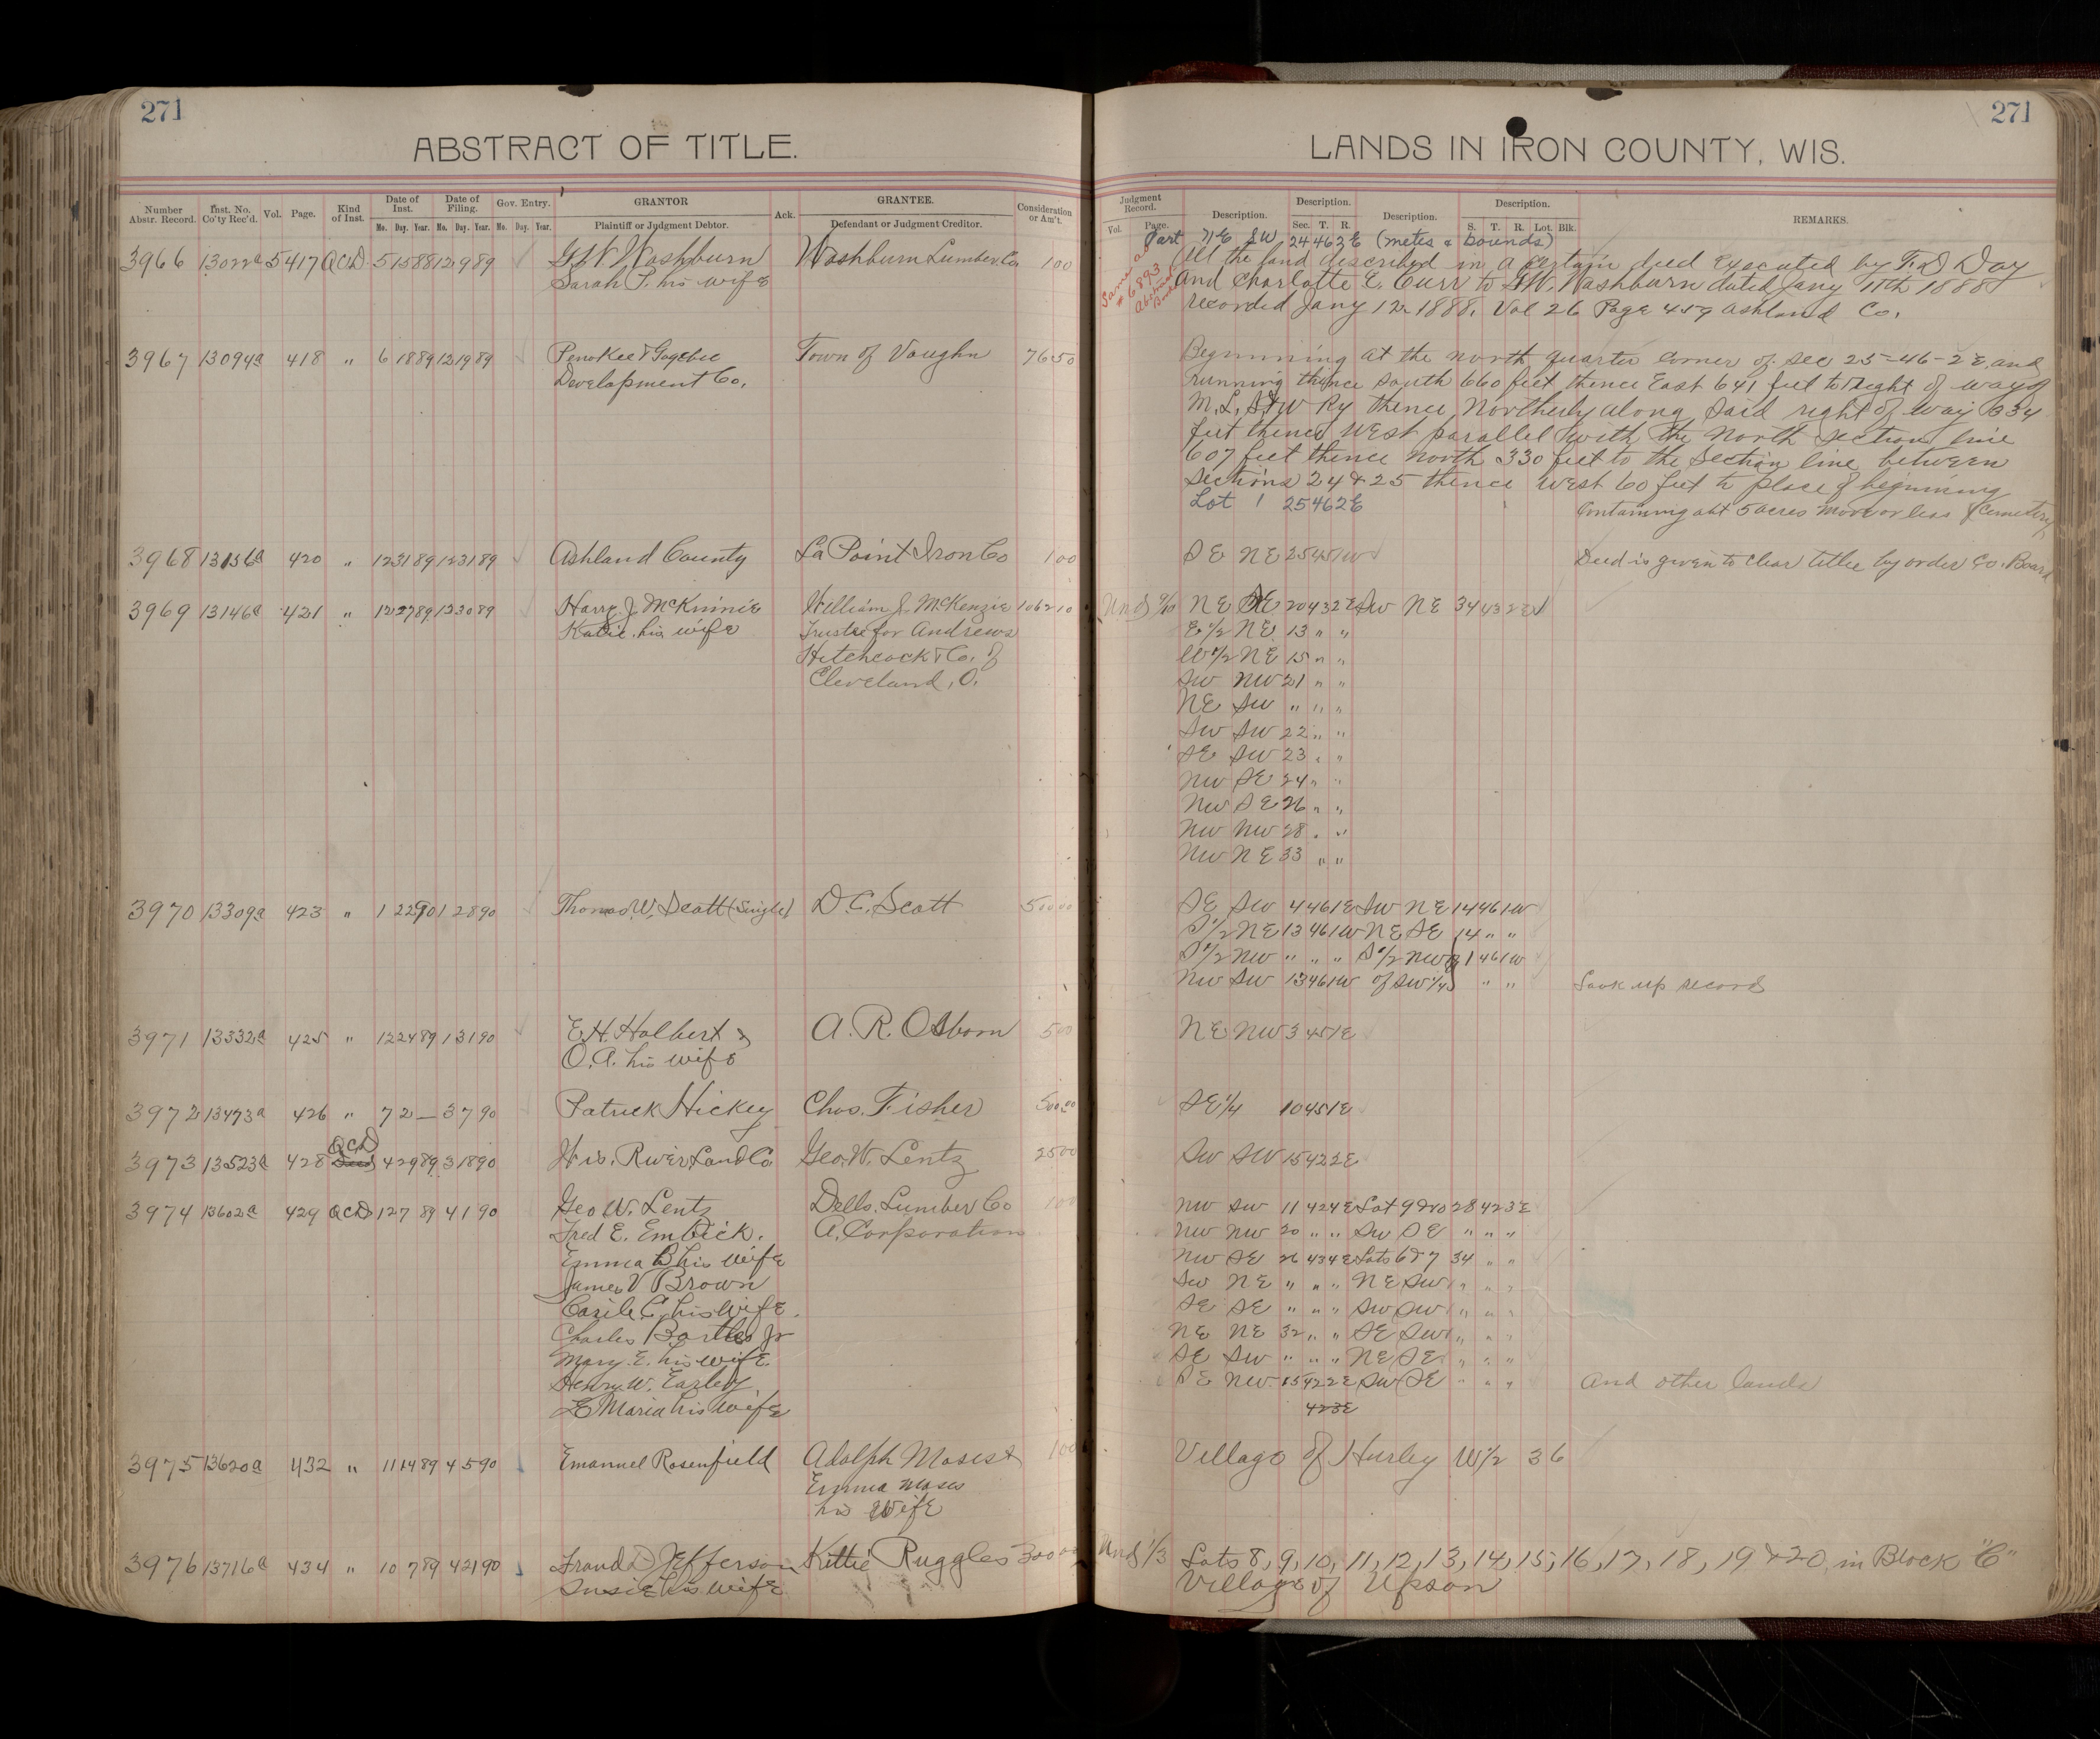 271
271
ABSTRACT OF TITLE.
LANDS IN IRON COUNTY, WIS.
Number Abstr. Record. Inst. No. Co'ty Rec'd. Vol. Page. Kind of Inst. Date of Inst. Date of Filing. Gov. Entry. GRANTOR Ack. GRANTEE. Consideration or Am't.
Mo. Day. Year. Mo. Day. Year. Mo. Day. Year. Plaintiff or Judgment Debtor. Defendant or Judgment Creditor.
Judgment Record. Description. Description. Description. Description. REMARKS.
Vol. Page. Sec. T. R. S. T. R. Lot. Blk.
Part NE SW 24 46 3E (metes & bounds)
3966 5 417 QCD 5 15 88 12 19 89 G.W. Washburn Washburn Lumber Co 100
Sarah P. his wife
Same as # 6893 Abstract Book
All the land described in a certain deed executed by F.D. Day
and Charlotte E. Curr to G.W. Washburn dated Jany 11th 1888
recorded Jany 12 1888. Vol 26 Page 459 Ashland Co.
3967 13094a 418 " 6 18 89 12 19 89 Penokee & Gogebic Town of Vaughn 76 50
Development Co.
Beginning at the north quarter corner of sec 25-46-2E and
running thence south 660 feet thence East 641 feet to right of way of
M.L.S.&W Ry thence Northerly along said right of way 334
feet thence West parallel with the North section line
607 feet thence North 330 feet to the section line between
Sections 24 & 25 thence West 60 feet to place of beginning
Lot 1 25 46 2E Containing abt 5 acres more or less (Cemetery)
3968 13156a 420 " 12 31 89 12 31 89 Ashland County La Point Iron Co 1 00
SE NE 25 45 1W Deed is given to clear title by order Co. Board
3969 13146a 421 " 12 27 89 12 30 89 Harry J. McKinnie William J. McKenzie 1062 10
Katie his wife Trustee for Andrews
Hitchcock & Co. of
Cleveland, O.
NE SE 20 43 2E SW NE 34 43 2E
E 1/2 NE 13 " "
W 1/2 NE 15 " "
SW NW 21 " "
NE SW " " "
SW SW 22 " "
SE SW 23 " "
NW SE 24 " "
NW SE 26 " "
NW NW 28 " "
NW NE 33 " "
3970 13309a 423 " 1 22 90 1 28 90 Thomas W. Scott (Single) D.C. Scott 50000
SE SW 4 46 1E SW NE 14 46 1W
S 1/2 NE 13 46 1W NE SE 14 " "
S 1/2 NW " " " S 1/2 NW 1 46 1W
NW SW 13 46 1W of SW 1/4 " " Look up record
3971 13332a 425 " 12 24 89 1 31 90 E.H. Halbert & A. R. Osborn 5 00
O.A. his wife
NE NW 3 45 1E
3972 13473a 426 " 7 2 — 3 7 90 Patrick Hickey Chas. Fisher 500.00
SE 1/4 10 45 1E
3973 13523a 428 QCD 4 29 89 3 18 90 Wis. River Land Co Geo. W. Lentz 25 00
SW SW 15 42 2E
3974 13602a 429 QCD 12 7 89 4 1 90 Geo W. Lentz Dells. Lumber Co 1 00
Fred E. Embick. A. Corporation
Emma B his wife
James V Brown
his wife.
Charles Jr
Mary E. his wife.
Henry W. Earley
Maria his wife
NW SW 11 42 4E Lot 9 & 10 28 42 3E
NW NW 20 " " SW SE " " "
NW SE 26 43 4E Lots 6 & 7 34 " "
SW NE " " " NE SW " " "
SE SE " " " SW SW " " "
NE NE 32 " " SE SW " " "
SE SW " " " NE SE " " "
SE NW 15 42 2E SW SE " " " And other lands
42 3E
3975 13620a 432 " 11 14 89 4 5 90 Emanuel Rosenfield Adolph Moses & 1 00
Emma Moses
his wife
Village of Hurley W 1/2 36
3976 13716a 434 " 10 7 89 4 21 90 Jefferson Kittie Ruggles 300 00
Susie his wife
Und 1/3 Lots 8, 9, 10, 11, 12, 13, 14, 15, 16, 17, 18, 19 & 20, in Block "C"
Village of Upson